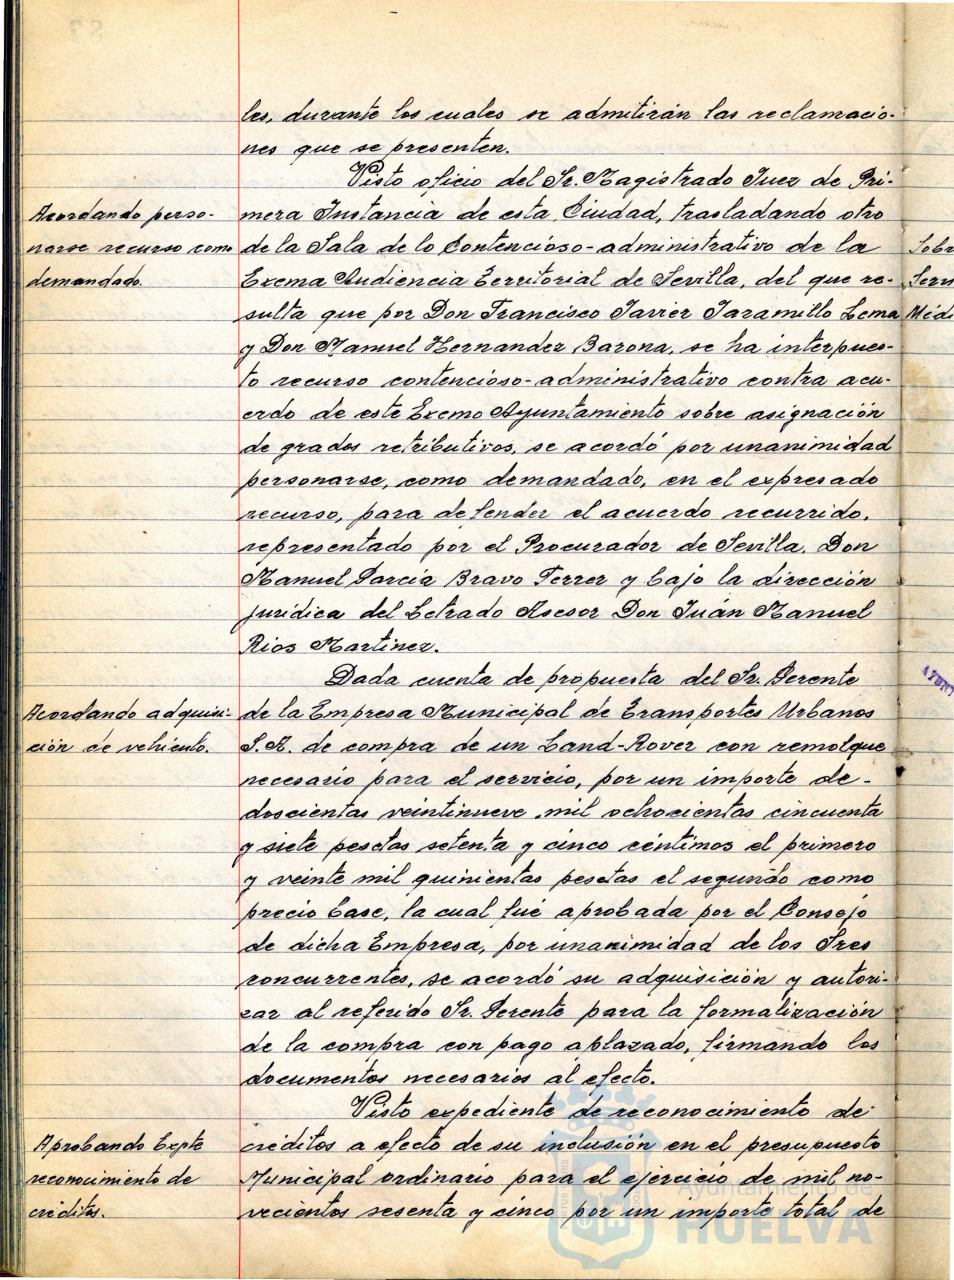 les, durante los cuales se admitirán las reclamacio-
nes que se presenten.
Acordando perso-
narse recurso como
demandado.
Visto oficio del Sr. Magistrado Juez de Pri-
mera Instancia de esta Ciudad, trasladando otro
de la Sala de lo Contencioso-administrativo de la
Excma Audiencia Territorial de Sevilla, del que re-
sulta que por Don Francisco Javier Jaramillo Lema
y Don Manuel Hernandez Barona, se ha interpues-
to recurso contencioso-administrativo contra acu-
erdo de este Excmo Ayuntamiento sobre asignación
de grados retributivos, se acordó por unanimidad
personarse, como demandado, en el expresado
recurso, para defender el acuerdo recurrido,
representado por el Procurador de Sevilla, Don
Manuel García Bravo Ferrer y bajo la dirección
jurídica del Letrado Asesor Don Juán Manuel
Rios Martinez.
Acordando adquisi-
ción de vehículo.
Dada cuenta de propuesta del Sr. Gerente
de la Empresa Municipal de Transportes Urbanos
S.A. de compra de un Land-Rover con remolque
necesario para el servicio, por un importe de-
doscientas veintinueve mil ochocientas cincuenta
y siete pesetas setenta y cinco céntimos el primero
y veinte mil quinientas pesetas el segundo como
precio base, la cual fué aprobada por el Consejo
de dicha Empresa, por unanimidad de los Sres
concurrentes, se acordó su adquisición y autori-
zar al referido Sr. Gerente para la formalización
de la compra con pago aplazado, firmando los
documentos necesarios al efecto.
Aprobando Expte
reconocimiento de
créditos.
Visto expediente de reconocimiento de
créditos a efecto de su inclusión en el presupuesto
Municipal ordinario para el ejercicio de mil no-
vecientos sesenta y cinco por un importe total de
Ayuntamiento de
HUELVA